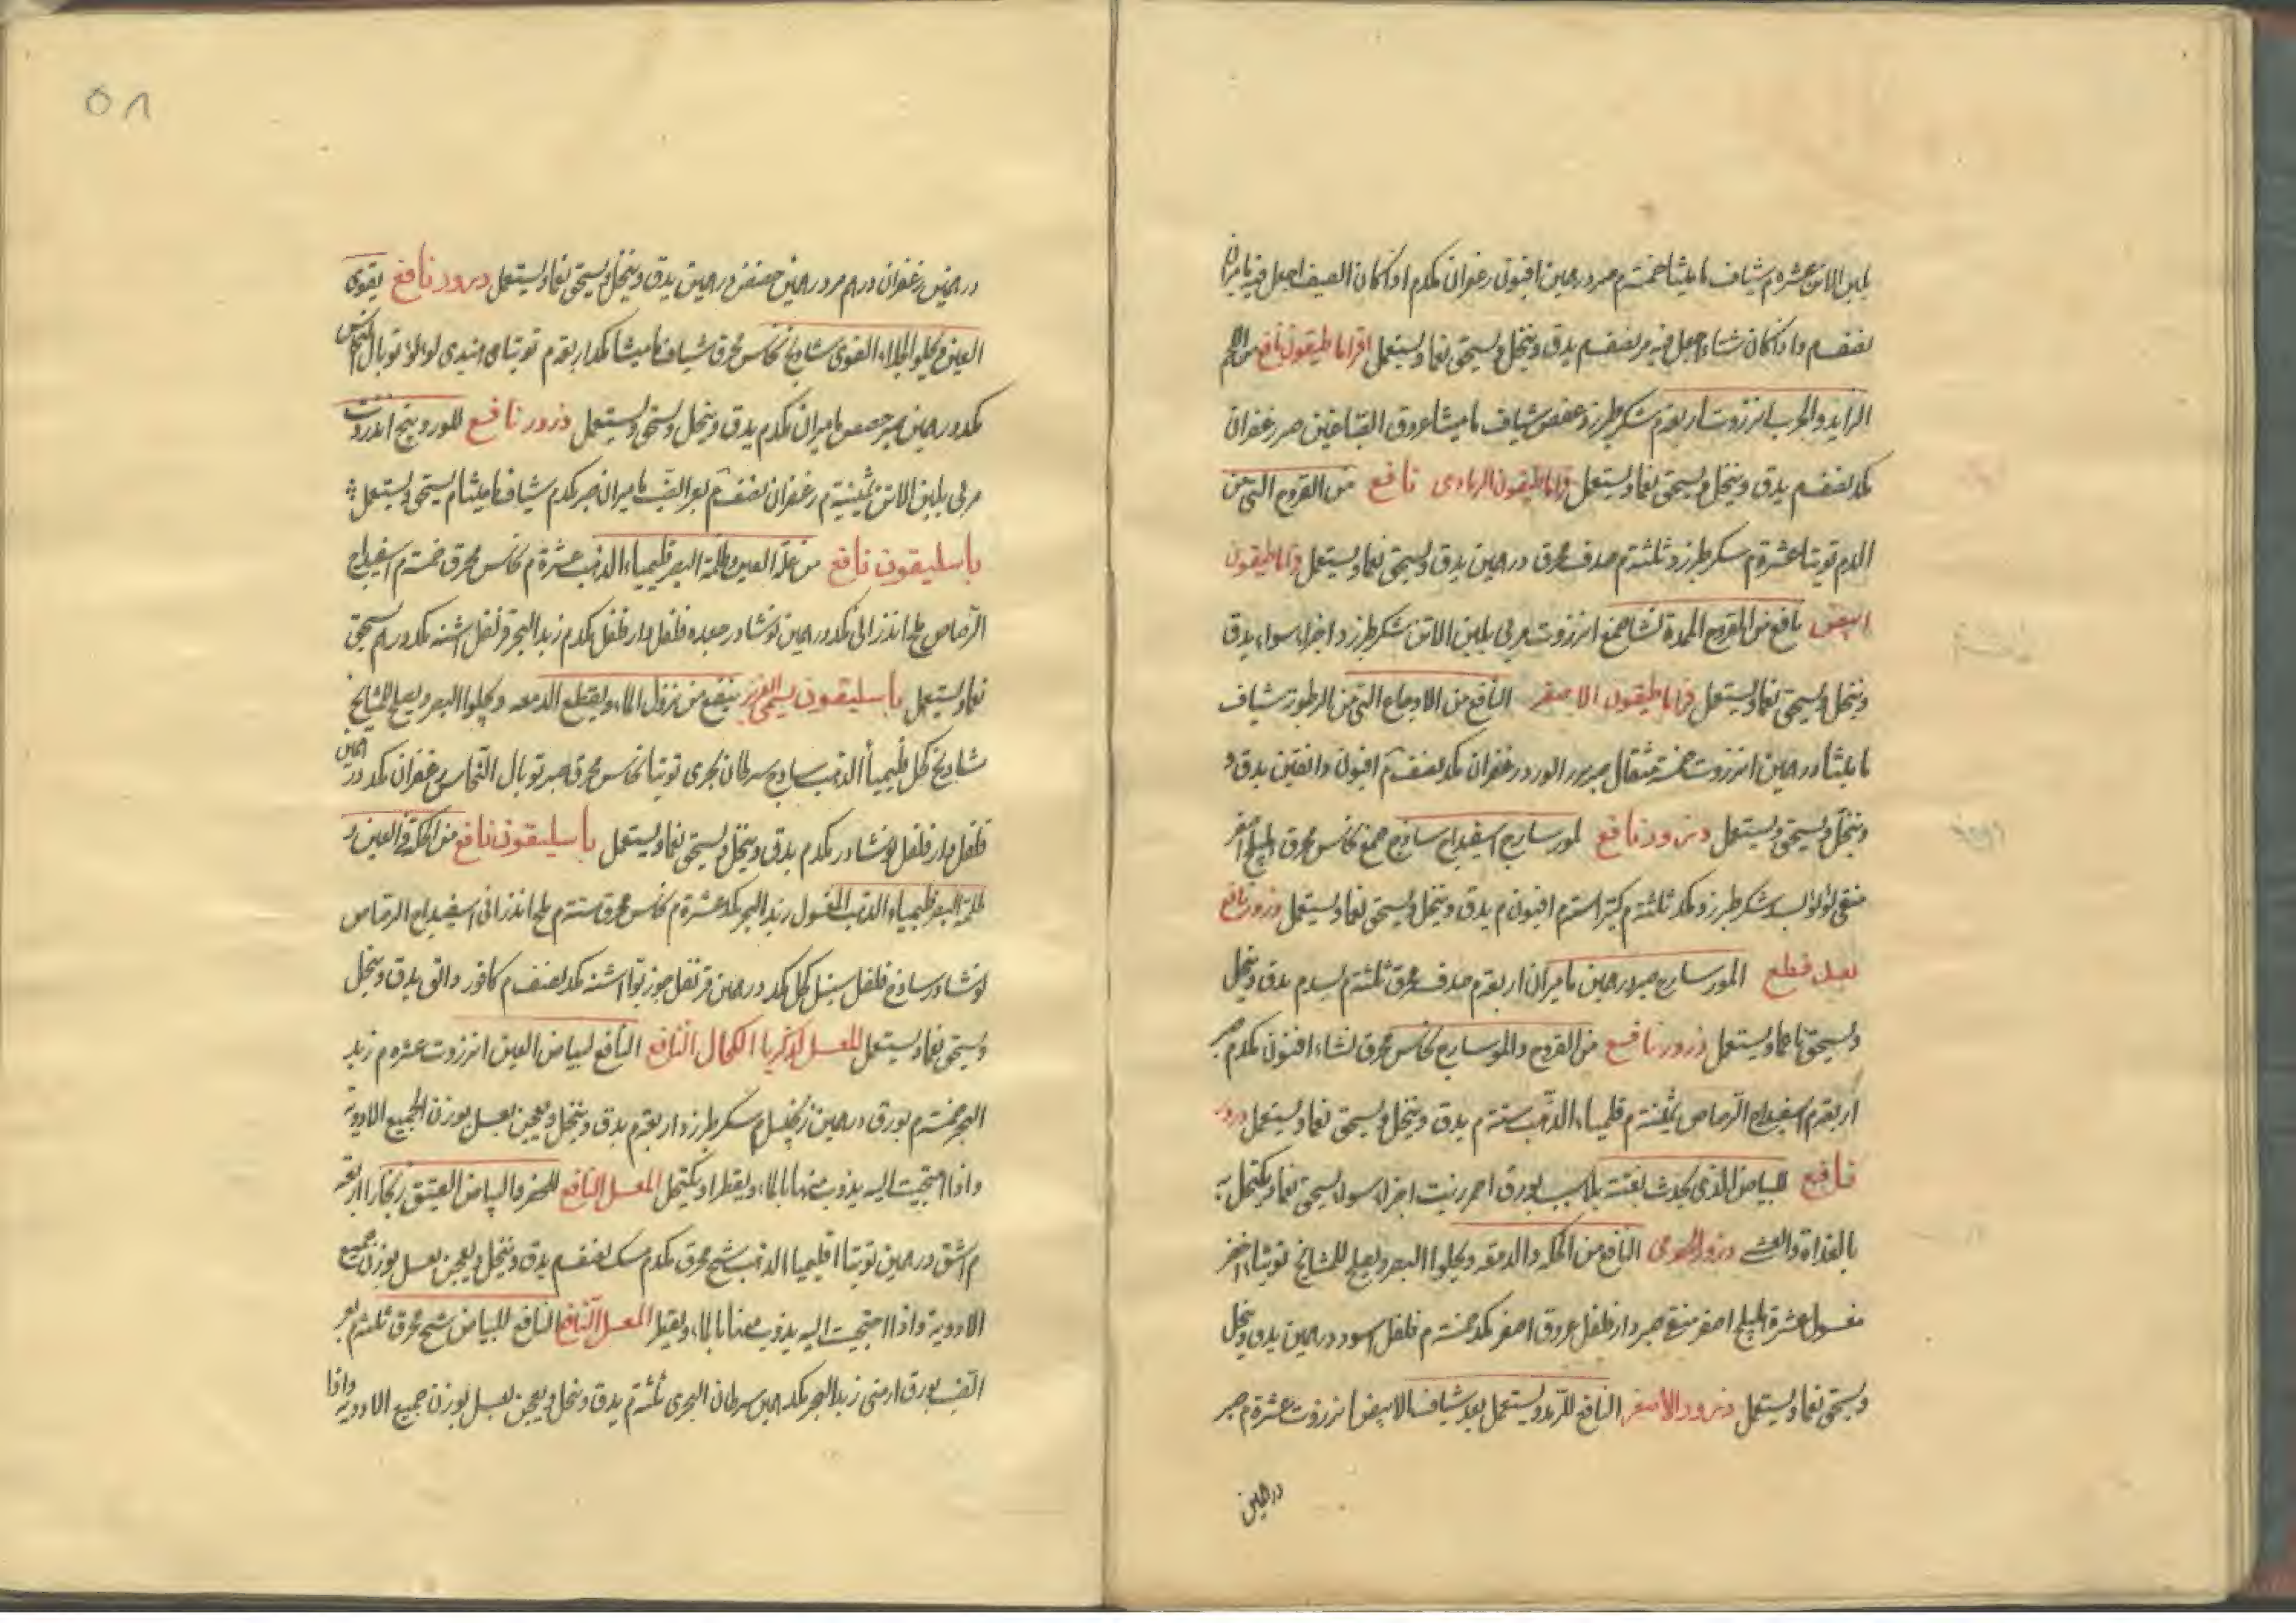 بلبن الاتن عشرة م شياف مامیثا خمسة م صبر درهمین افیون زعفران مکدم اذا کان الصیف اجعل فیه مامیران
نصفم واذا کان شتاء اجعل فیه مر نصفم یدق وینخل ویسحق نعما ویستعمل اقراماطیقون نافع من اللحم
الزاید والجرب انزروت اربعة م سکر طبرزد عفص شیاف مامیثا عروق الصباغین صبر زعفران
مکد نصفم یدق وینخل ویسحق نعما ویستعمل قراماطیقون الرمادی نافع من القروح التی من
الدم توتیا عشرة م سکر طبرزد ثلثة م صدف محرق درهمین یدق ویسحق نعما ویستعمل قراماطیقون
ابیض نافع من القروح المدة نشا صمغ انزروت مربی بلبن الاتن سکر طبرزد اجزاء سواء یدق
وینخل ویسحق نعما ویستعمل قراماطیقون الاصفر النافع من الاوجاع التی من الرطوبة شیاف
مامیثا درهمین انزروت خمسة مثقال صبر بزر الورد زعفران مکد نصف م افیون دانقین یدق و
وینخل ویسحق ویستعمل ذرور نافع لمورسارج اسفیداج ساذج صمغ نحاس محرق هلیلج اصفر
منقی لؤلؤ بسد سکر طبرزد مکد ثلثة م کثیرا ستة م افیون م یدق وینخل ویسحق نعما ویستعمل ذرور نافع
یعمل قطع المورسارج صبر درهمین مامیران اربعة م صدف محرق ثلثة م بسد م یدق وینخل
ویسحق ناعما ویستعمل ذرور نافع من القروح والمورسارج نحاس محرق نشاء افیون مکدم صبر
اربعة م اسفیداج الرصاص ثمنیة م قلیمیاء الذهب ستة م یدق وینخل ویسحق نعما ویستعمل ذرور
نافع للبیاض الذی یحدث بغتة بلا سبب بورق احمر زیت اجزاء سواء یسحق نعما ویکتحل به
بالغداة والعشی ذرور النافع من الحکة والدمعة ویجلوا البصر ویصلح للمشایخ توتیا اخضر
مغسول عشرة هلیلج اصفر منقی صبر دارفلفل عروق اصفر مکد خمسة م فلفل اسود درهمین یدق وینخل
ویسحق نعما ویستعمل ذرور الاصفر النافع للرمد ویستعمل بعد شیاف الابیض انزروت عشرة م صبر
درهمین
٥٨
درهمین زعفران درهم مر درهمین حضض درهمین یدق وینخل ویسحق نعما ویستعمل ذرور نافع یقوی
العین ویجلو الجلاء القوی شادنج نحاس محرق شیاف مامیثا مکد اربعة م توتیای هندی لؤلؤ توبال النحاس
مکد درهمین صبر حضض مامیران مکدم یدق وینخل ویسحق ویستعمل ذرور نافع للوردینج انزروت
مربی بلبن الاتن ثمنیة م زعفران نصف م بعر الضب مامیران صبر مکدم شیاف مامیثا م یسحق ویستعمل
باسلیقون نافع من علة العین وظلمة البصر قلیمیاء الذهب عشرة م نحاس محرق خمسة م اسفیداج
الرصاص ملح اندرانی مکد درهمین نوشادر جعده فلفل دارفلفل مکدم زبد البحر قرنفل اشنه مکد درهم یسحق
نعما ویستعمل باسلیقون یسمی العزیز ینفع من نزول الماء ویقطع الدمعه ویجلوا البصر ویصلح للمشایخ
شادنج کحل قلیمیا الذهب ساذج سرطان بحری توتیا نحاس محرق صبر توبال النحاس زعفران مکد درهمین
فلفل دارفلفل نوشادر مکدم یدق وینخل ویسحق نعما ویستعمل باسلیقون نافع من الحکة فی العین و
ظلمة البصر قلیمیاء الذهب المغسول زبد البحر مکد عشرة م نحاس محرق ستة م ملح اندرانی اسفیداج الرصاص
نوشادر ساذج فلفل سنبل کحل مکد درهمین قرنفل جوزبوا اشنه مکد نصف م کافور دانق یدق وینخل
ویسحق نعما ویستعمل المعسل لزکریا الکحال النافع النافع لبیاض العین انزروت عشرة م زبد
البحر خمسة م بورق درهمین زنجبیل م سکر طبرزد اربعة م یدق وینخل ویعجن بعسل بوزن الجمیع الادویة
واذا احتجت الیه یذوب منها بالماء ویقطر او یکتحل المعسل النافع للحفر والبیاض العتیق زنجار اربعة
م اشق درهمین توتیا اقلیمیا الذهب شیح محرق مکدم مسک نصفم یدق وینخل ویعجن بعسل بوزن جمیع
الادویة واذا احتجت الیه یذوب منها بالماء ویقطر المعسل النافع النافع للبیاض شیح محرق ثلثة م بعر
الضب بورق ارمنی زبد البحر مکد درهمین سرطان البحری ثلثة م یدق وینخل ویعجن بعسل بوزن جمیع الادویة واذا